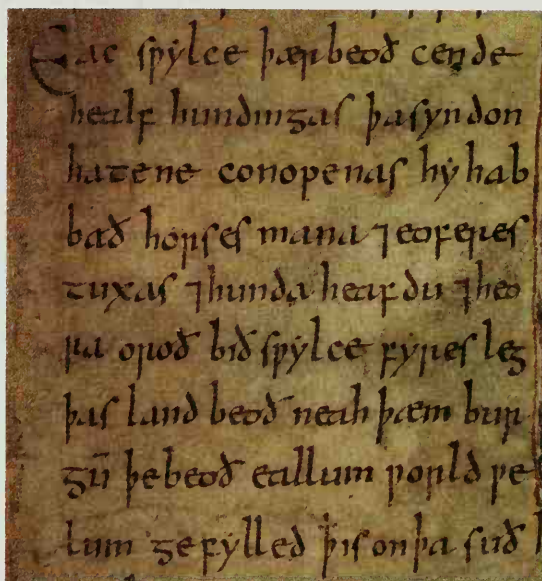 Eac sƿylce þær beoð cende
healf hundingas þa syndon
hatene conopenas hy hab
bað horses mana ⁊ eoferes
tuxas ⁊ hunda heafdu ⁊ heo
ra oroð bið sƿylce fyres leg
þas land beoð neah þæm bur
gū þe beoð eallum ƿorld ƿe
lum gefylled ꝥ is on þa suð